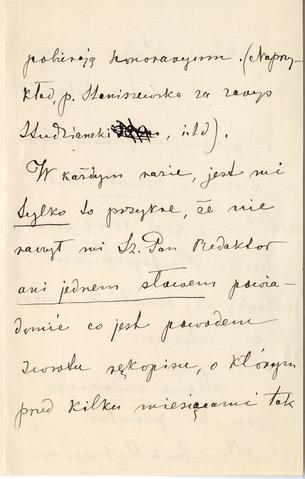 pobierają honoraryum. (Naprzy-
kład, p. Staniszewska za
Studzianeki , itd).
W każdym razie, jest mi
tylko to przykre, że nie
raczył mi Sz. Pan Redaktor
ani jednem słowem powia-
domić co jest powodem
zwrotu rękopisu, o którym
przed kilku miesiącami tak